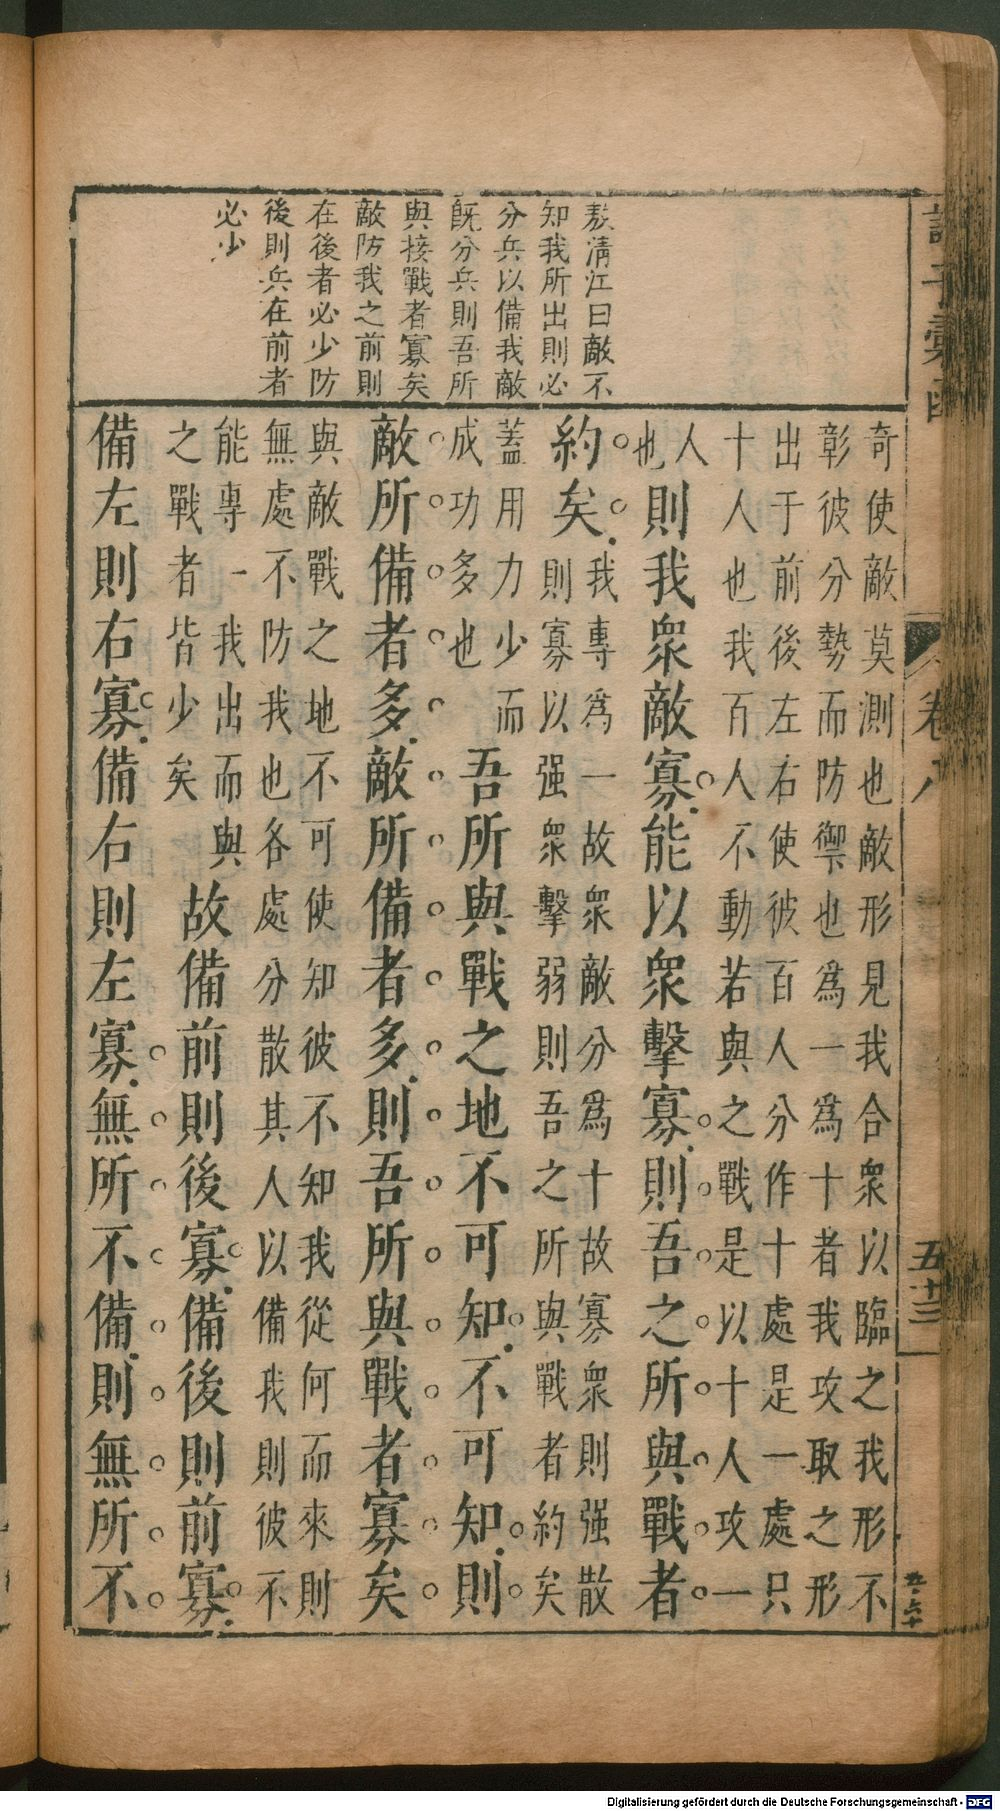 諸子彙函
卷八
五十三
敖清江曰敵不
知我所出則必
分兵以備我敵
旣分兵則吾所
與接戰者寡矣
敵防我之前則
在後者必少防
後則兵在前者
必少
奇使敵莫測也敵形見我合衆以臨之我形不
彰彼分勢而防禦也爲一爲十者我攻取之形
出于前後左右使彼百人分作十處是一處只
十人也我百人不動若與之戰是以十人攻一
人也則我衆敵寡能以衆擊寡則吾之所與戰者
約矣我專爲一故衆敵分爲十故寡衆則强散
則寡以强衆擊弱則吾之所與戰者約矣
蓋用力少而
成功多也吾所與戰之地不可知不可知則
敵所備者多敵所備者多則吾所與戰者寡矣
與敵戰之地不可使知彼不知我從何而來則
無處不防我也各處分散其人以備我則彼不
能專一我出而與
之戰者皆少矣故備前則後寡備後則前寡
備左則右寡備右則左寡無所不備則無所不
Digitalisierung gefördert durch die Deutsche Forschungsgemeinschaft - DFG